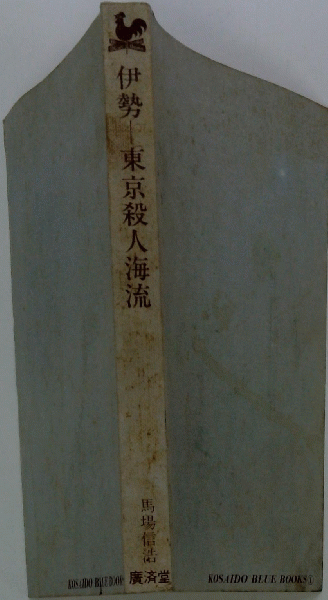 伊勢―東京殺人海流
馬場信浩
廣済堂
KOSAIDO BLUE BOOKS
KOSAIDO BLUE BOOKS